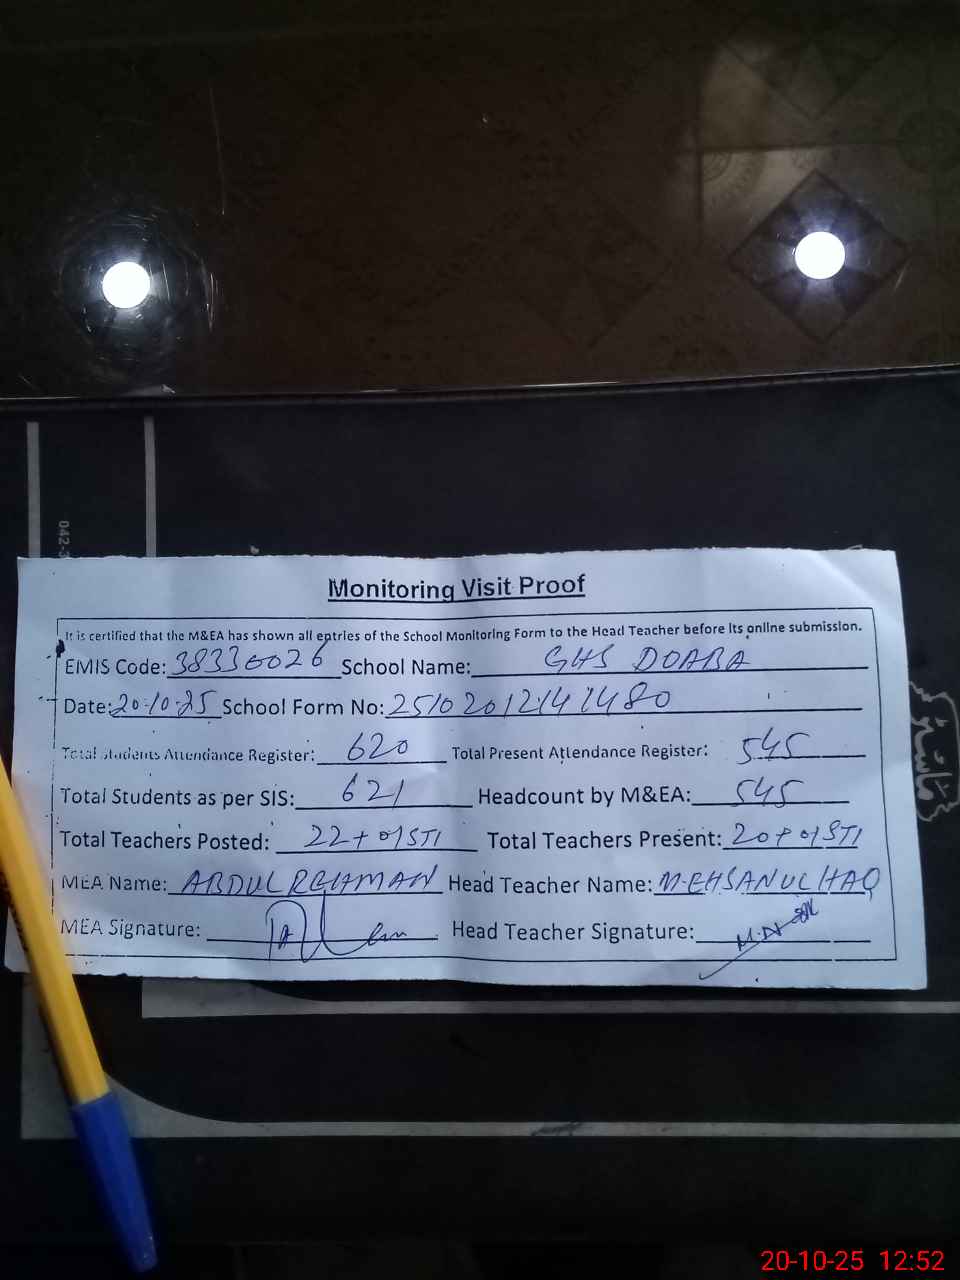 042-3
Monitoring Visit Proof
It is certified that the M&EA has shown all entries of the School Monitoring Form to the Head Teacher before its online submission.
EMIS Code: 38330026 School Name: GHS DOABA
Date: 20-10-25 School Form No: 25102012141480
Total Students Attendance Register: 620 Total Present Attendance Register: 545
Total Students as per SIS: 621 Headcount by M&EA: 545
Total Teachers Posted: 22+01STI Total Teachers Present: 20+01STI
MEA Name: ABDUL REHMAN Head Teacher Name: M.EHSAN UL HAQ
MEA Signature: Head Teacher Signature:
20-10-25 12:52